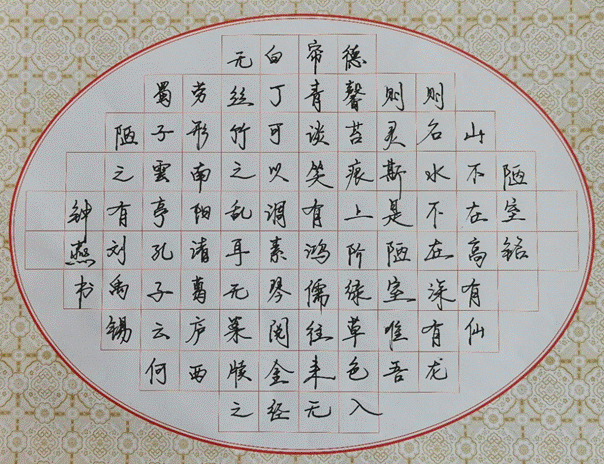 陋室铭
山不在高有仙
则名水不在深有龙
则灵斯是陋室唯吾
德馨苔痕上阶绿草色入
帘青谈笑有鸿儒往来无
白丁可以调素琴阅金经
无丝竹之乱耳无案牍之
劳形南阳诸葛庐西
蜀子雲亭孔子云何
陋之有刘禹锡
钟燕书